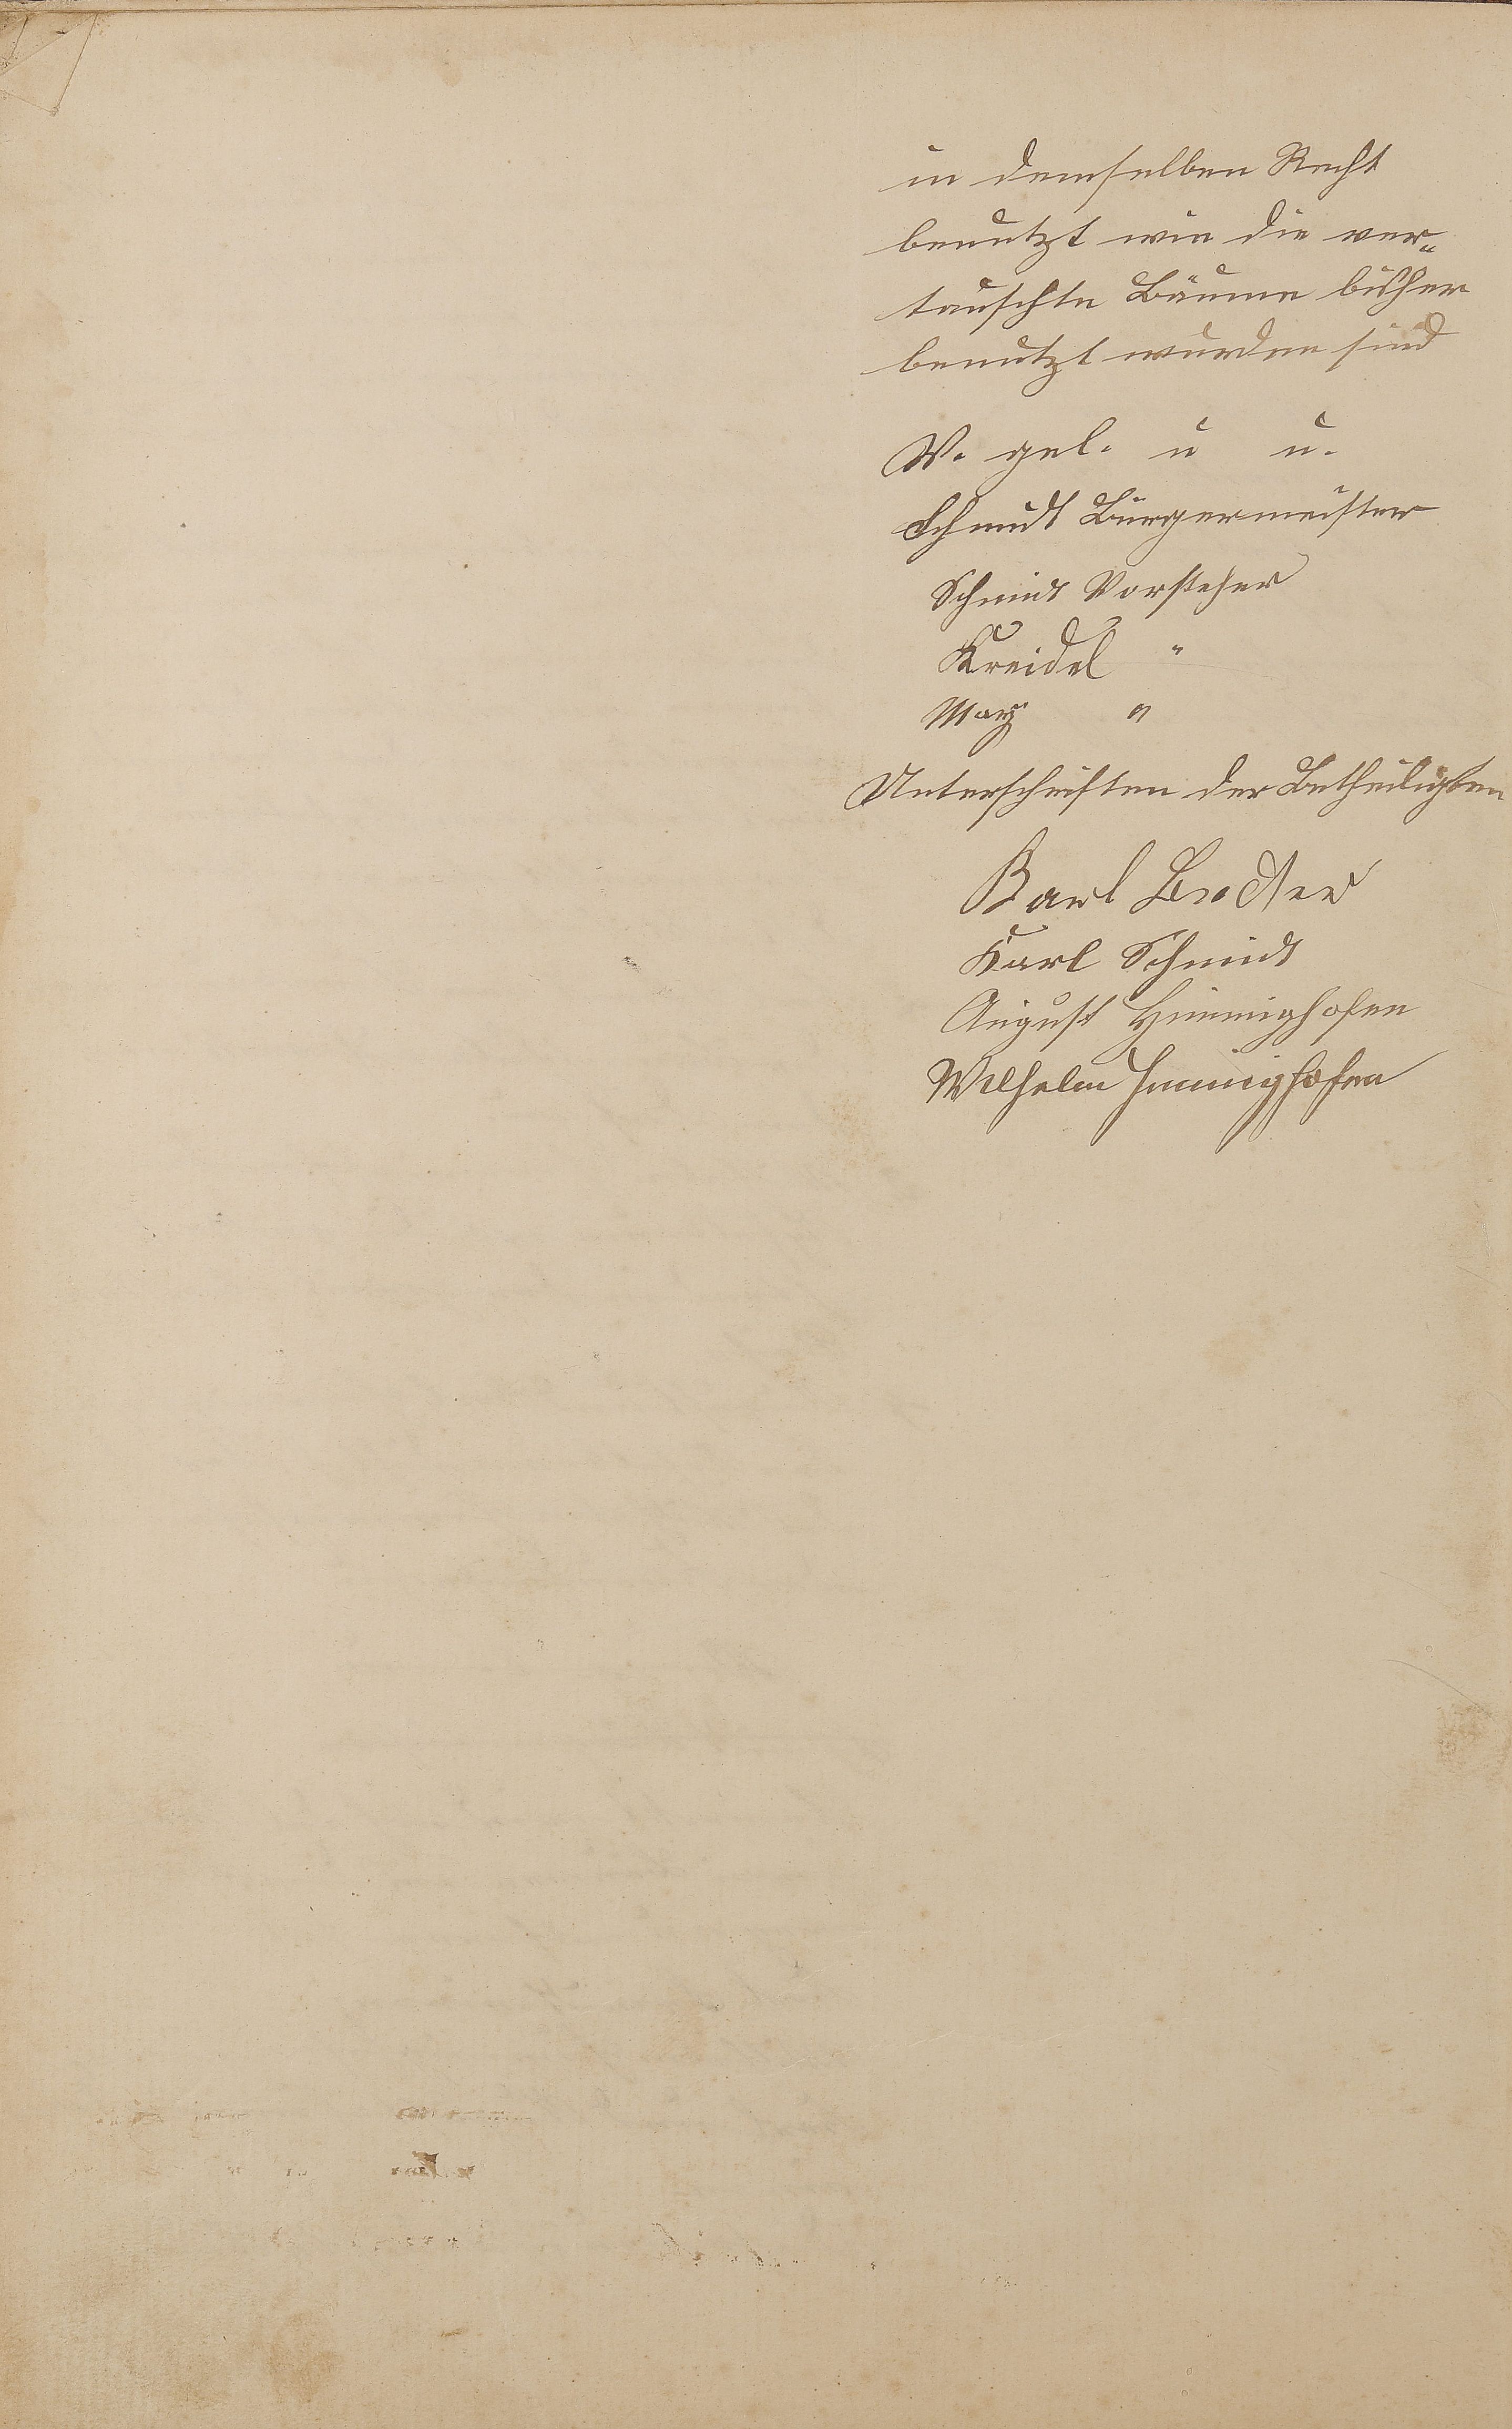 in demselben Recht
benutzt wie die ver„
tauschte Bäume bisher
benutzt wurden sind
V. gel. u u.
Schmidt Bürgermeister
Schmidt Vorsteher
Kreidel "
Marx "
Unterschriften der Betheiligten
Karl
Karl Schmidt
August Himmighofen
Wilhelm Himmighofen